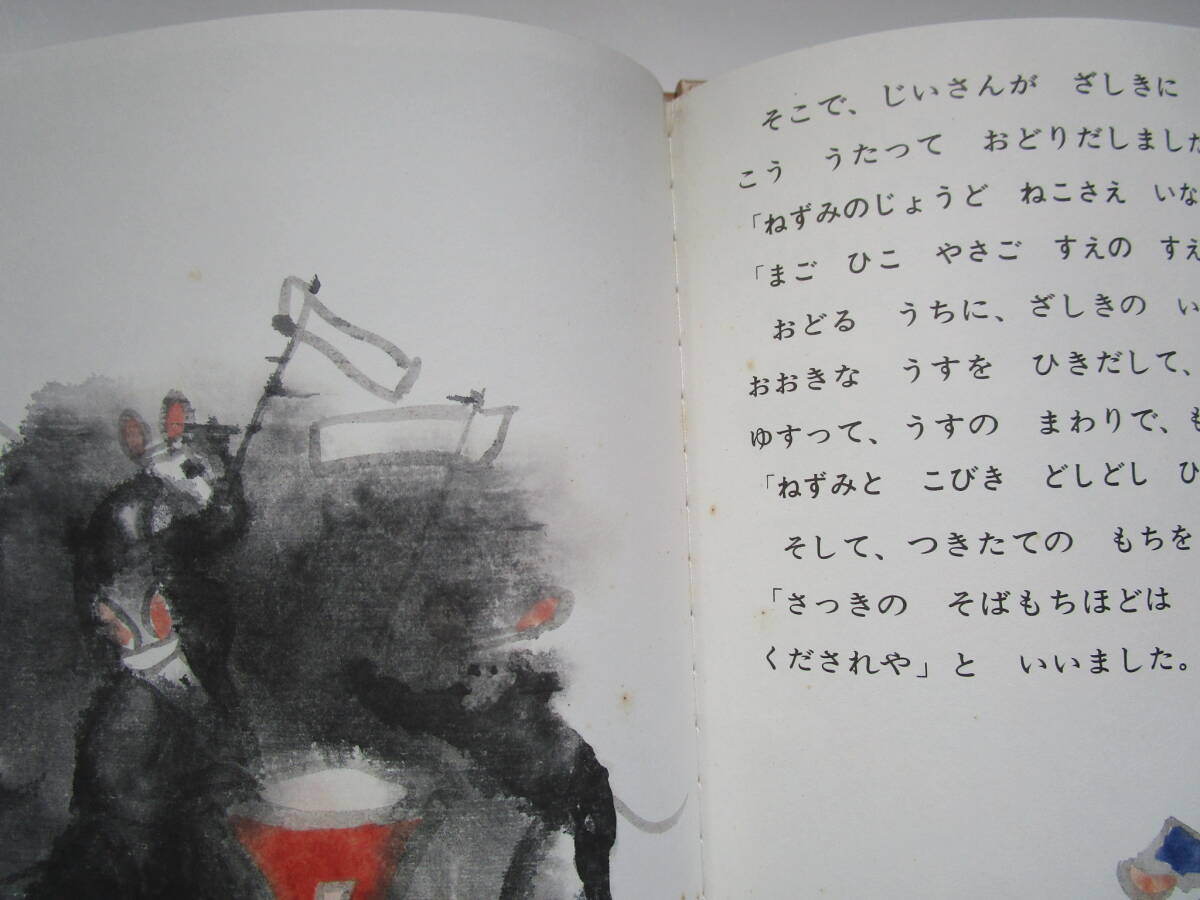 そこで、じいさんが　ざしきに
こう　うたって　おどりだしました
「ねずみのじょうど　ねこさえ　いな
「まご　ひこ　やさご　すえの　すえ
おどる　うちに、ざしきの　い
おおきな　うすを　ひきだして、
ゆすって、うすの　まわりで、も
「ねずみと　こびき　どしどし　ひ
そして、つきたての　もちを
「さっきの　そばもちほどは
くだされや」と　いいました。